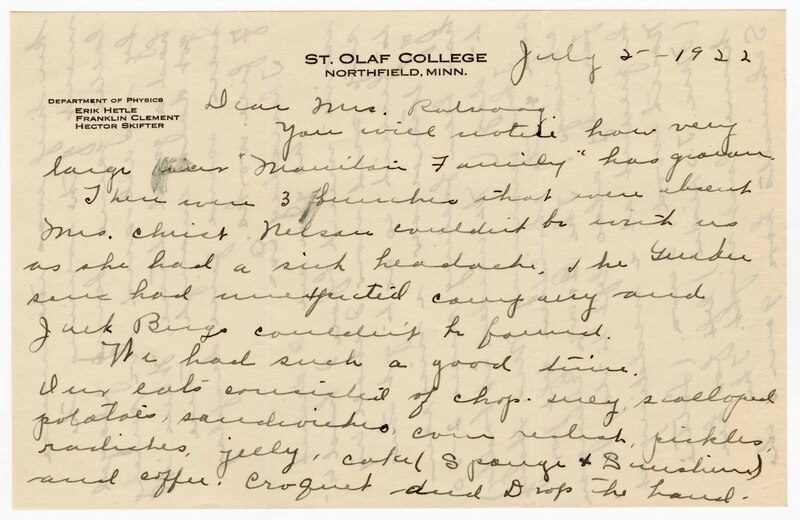 ST. OLAF COLLEGE
NORTHFIELD, MINN.
July 2-1922
DEPARTMENT OF PHYSICS
ERIK HETLE
FRANKLIN CLEMENT
HECTOR SKIFTER
Dear Mrs.
You will notice how very
large "Manitou Family" has grown.
There were 3 Bunches that were absent
Mrs. Christ Nelson couldn't be with us
as she had a sick headache, the
had unexpected company and
Jack Bergs couldn't be found.
We had such a good time.
Our eats consisted of chop-suey, scalloped
potatoes, sandwiches, corn relish, pickles,
radishes, jelly, cake (Sponge + Sunshine)
and coffee. Croquet and Drop the hand.